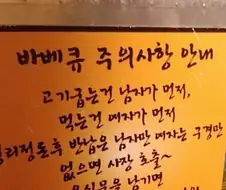 바베큐 주의사항 안내
고기굽는건 남자가 먼저,
먹는건 여자가 먼저
리정돈후 반납은 남자만 여자는 구경만
없으면 사장 호출~
음식물을 남기면